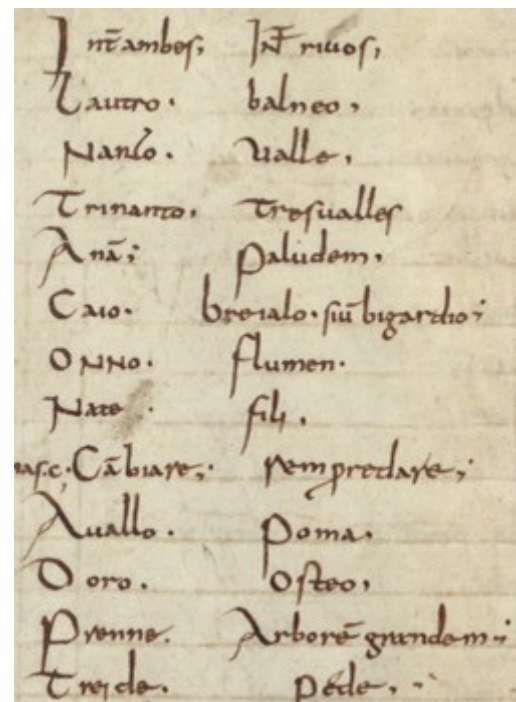 Int̄ambes; Int̄ rivos,
Lautro. balneo,
Nanto. ualle,
Trinanto. Tresualles
Anā; paludem,
Caio. breialo. siū bigardio;
Onno. flumen.
Nate. fili,
Cābiare; rem pro re dare;
Auallo. poma.
Doro. Osteo,
Prenne. Arborē grandem;
Treide. pede.